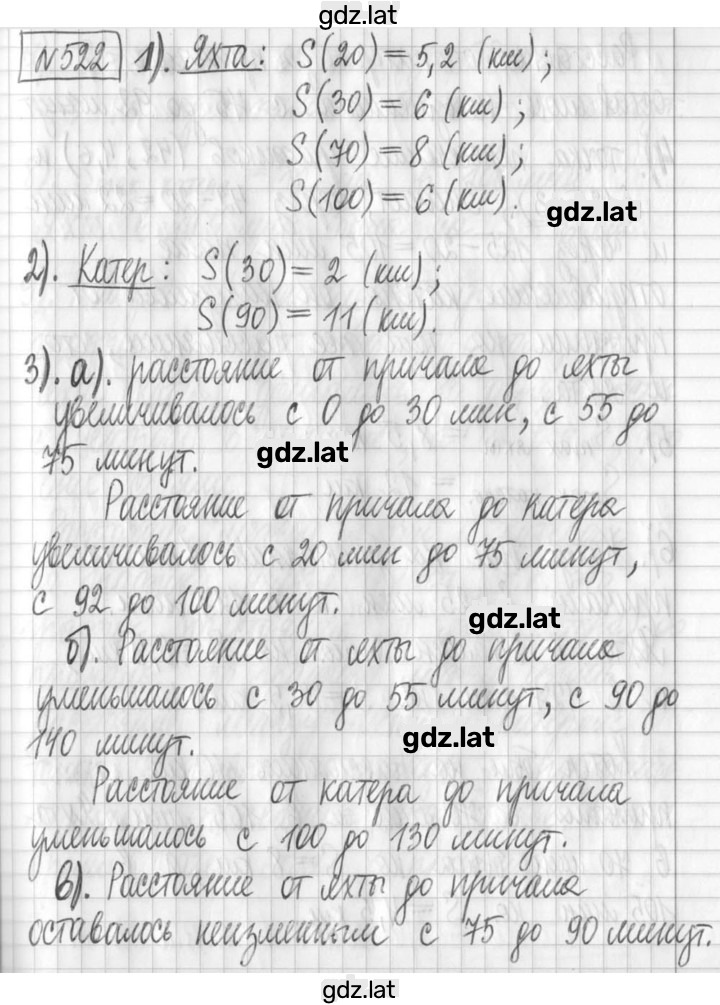 gdz.lat
№522 1). Яхта: S(20) = 5,2 (км);
S(30) = 6 (км);
S(70) = 8 (км);
S(100) = 6 (км).
gdz.lat
2). Катер: S(30) = 2 (км);
S(90) = 11 (км).
3). а). расстояние от причала до яхты
увеличивалось с 0 до 30 мин, с 55 до
75 минут.
gdz.lat
Расстояние от причала до катера
увеличивалось с 20 мин до 75 минут,
с 92 до 100 минут.
gdz.lat
б). Расстояние от яхты до причала
уменьшалось с 30 до 55 минут, с 90 до
140 минут.
gdz.lat
Расстояние от катера до причала
уменьшалось с 100 до 130 минут.
в). Расстояние от яхты до причала
оставалось неизменным с 75 до 90 минут.
gdz.lat